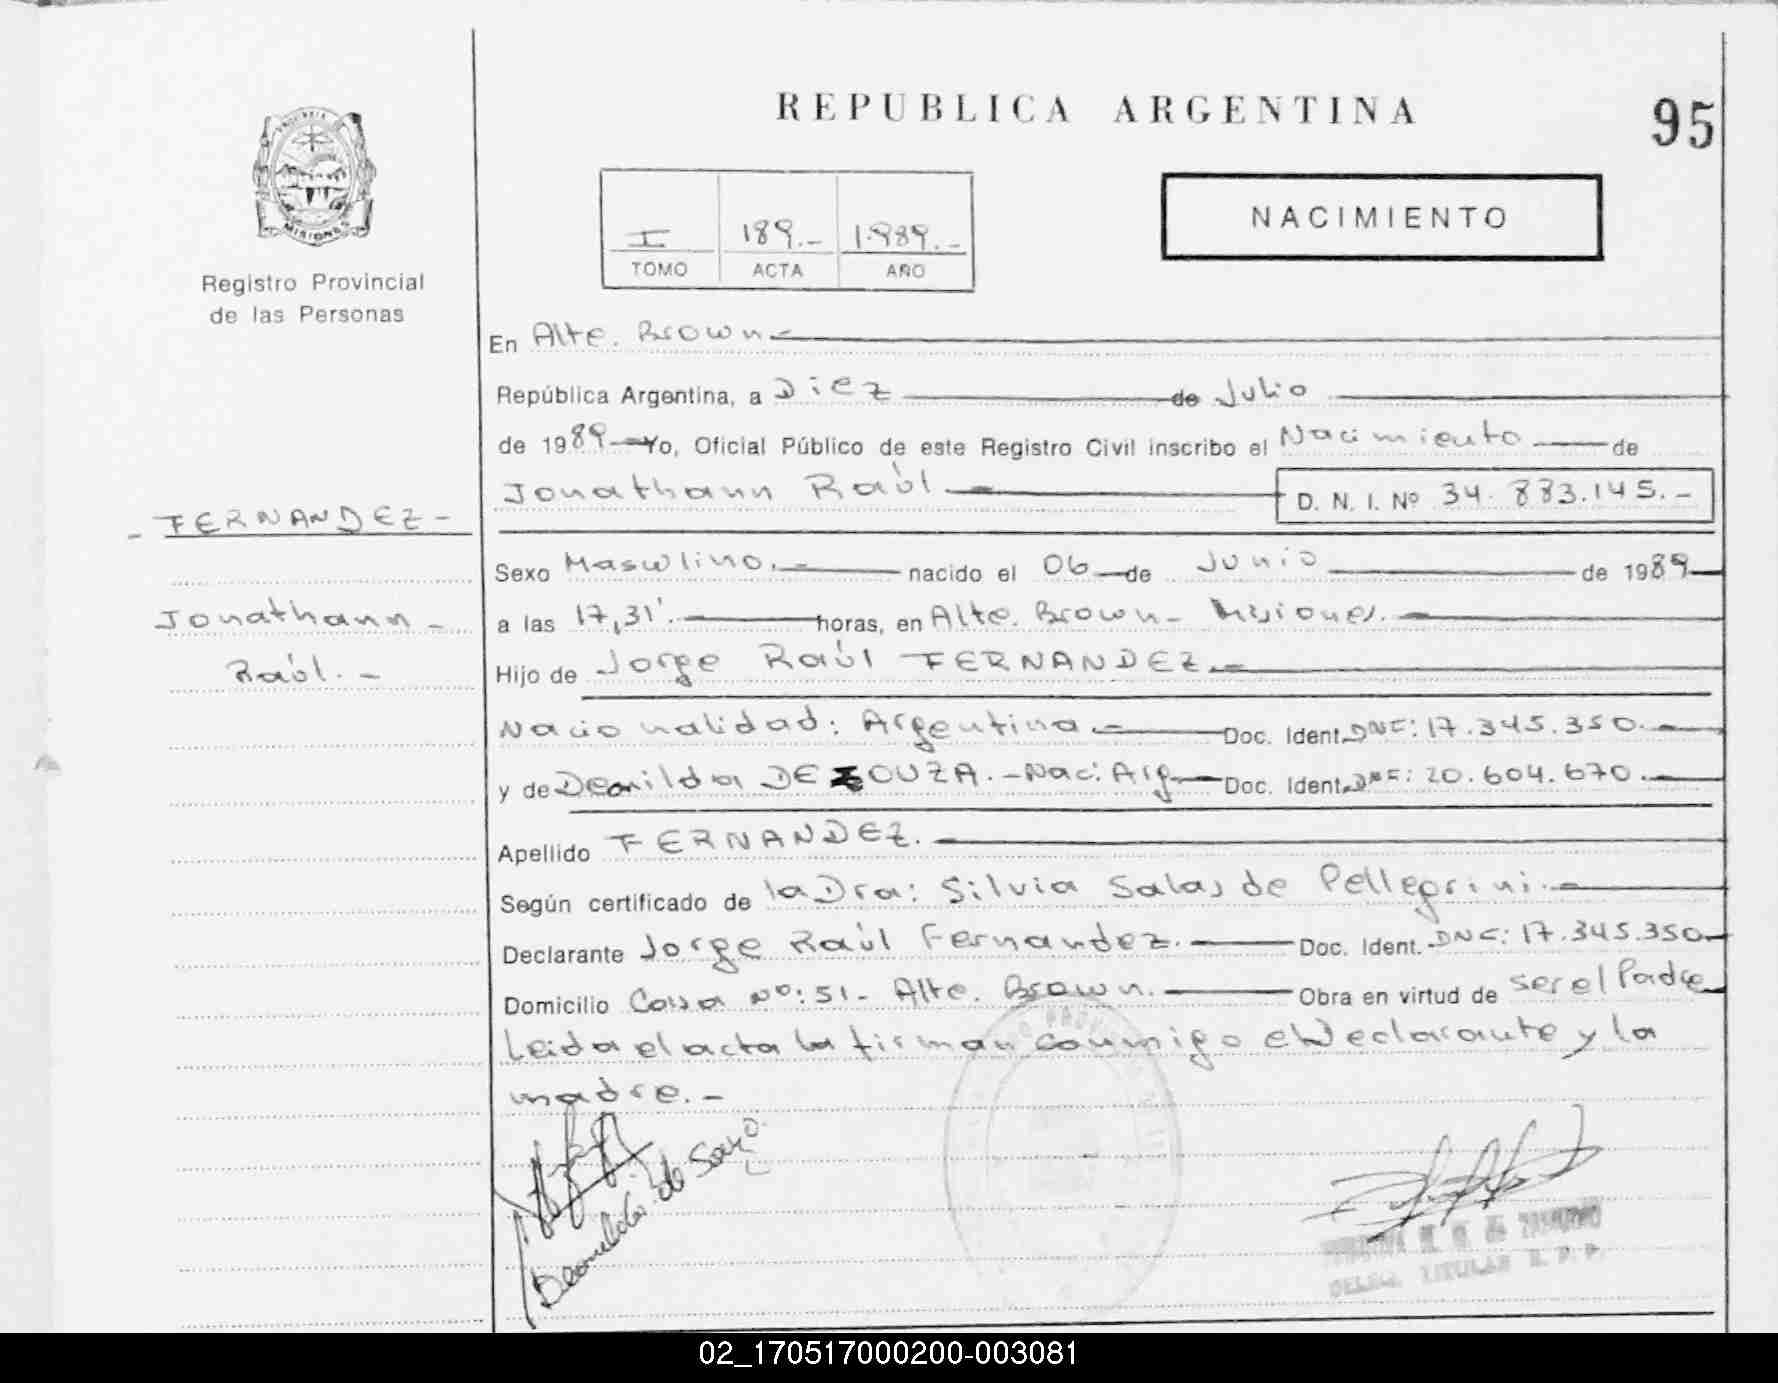 REPUBLICA ARGENTINA
95
PROVINCIA
MISIONES
Registro Provincial
de las Personas
I 189.- 1.989.-
TOMO ACTA AÑO
NACIMIENTO
En Alte. Brown.-
República Argentina, a Diez de Julio
de 1989 Yo, Oficial Público de este Registro Civil inscribo el Nacimiento de
Jonathann Raúl.- D. N. I. Nº 34.883.145.-
- FERNANDEZ -
Sexo Masculino.- nacido el 06 de Junio de 1989
Jonathann -
a las 17,31'. horas, en Alte. Brown - Misiones.-
Raúl. -
Hijo de Jorge Raúl FERNANDEZ.-
Nacionalidad: Argentina.- Doc. Ident. DNI: 17.345.350.-
y de DE SOUZA.- Nac: Arg. Doc. Ident. DNI: 20.604.670.-
Apellido FERNANDEZ.-
Según certificado de la Dra: Silvia Salas de Pellegrini.-
Declarante Jorge Raúl Fernandez.- Doc. Ident. DNI: 17.345.350
Domicilio Casa Nº: 51- Alte. Brown.- Obra en virtud de ser el Padre
Leida el acta la firman conmigo el Declarante y la
madre.-
de
DELEG. TITULAR R. P. P.
02_170517000200-003081